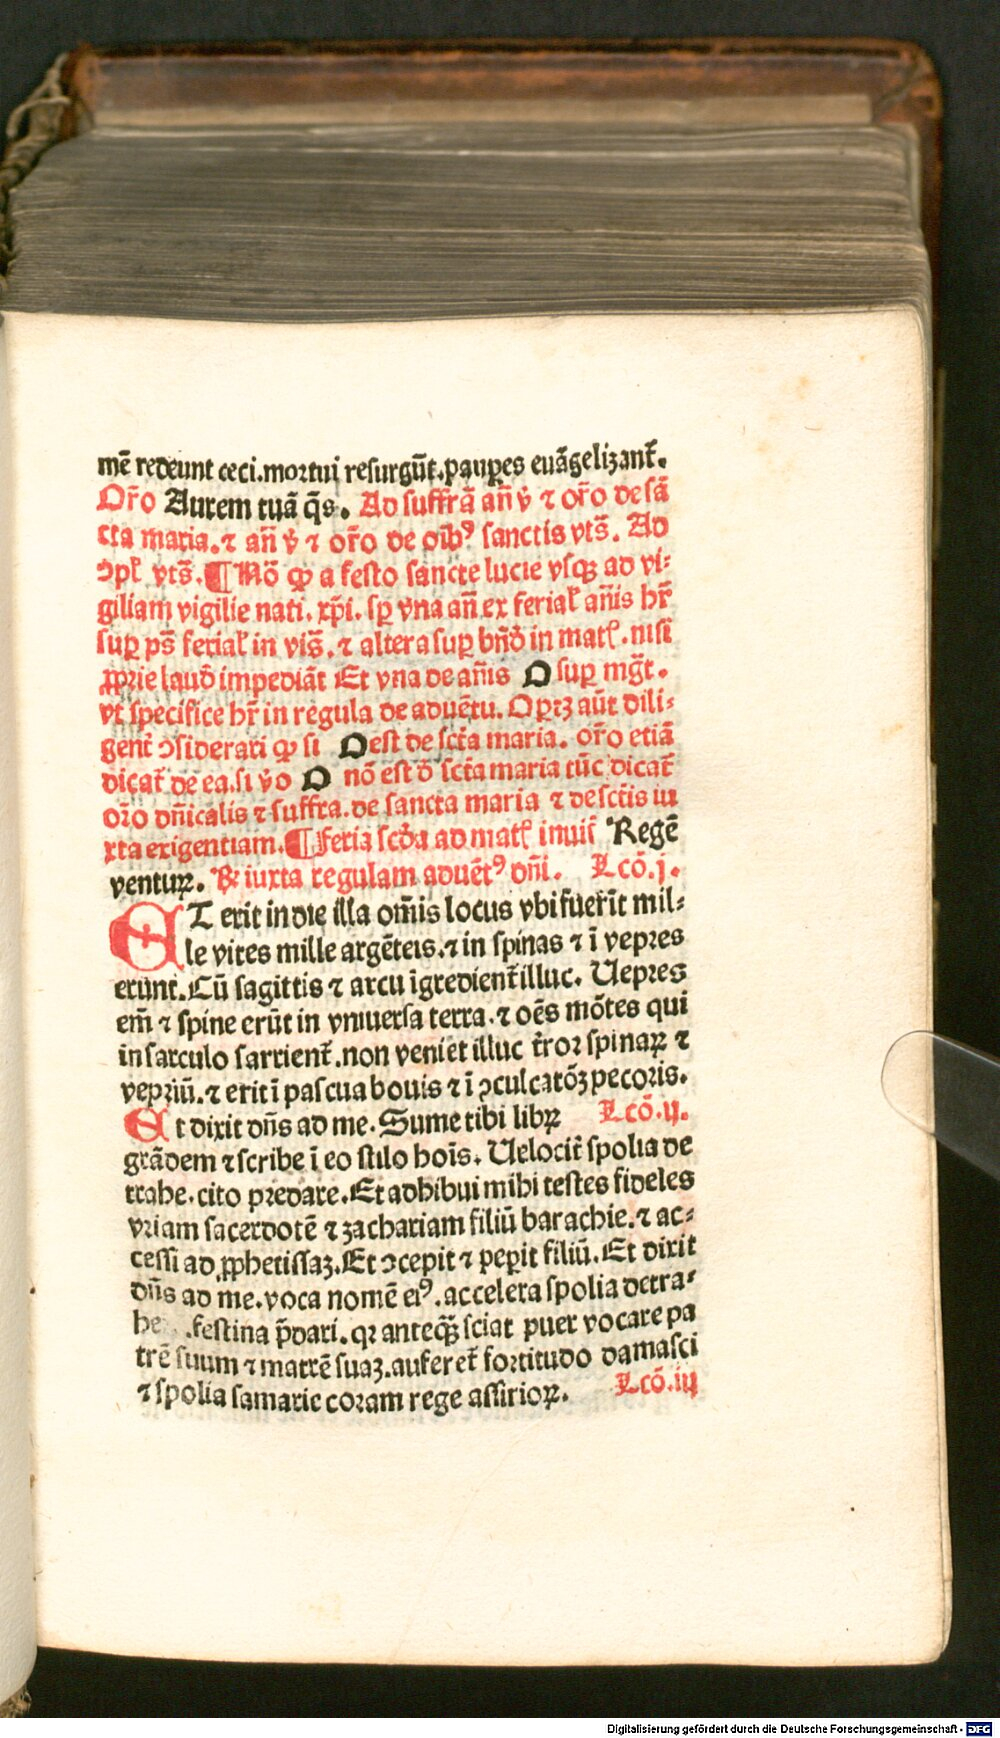 mē redeunt ceci.mortui resurgūt.pauꝑes euāgelizant̄.
Or̄o Aurem tuā q̄s. Ad suffrā an̄ v̄ ⁊ or̄o de sā
cta maria.⁊ an̄ v̄ ⁊ or̄o de oīb⁹ sanctis vts̄. Ad
ↄpl̄ vts̄.¶ Mō ꝙ a festo sancte lucie vsqꝫ ad vi⸗
giliam vigilie nati. xp̄i. sꝑ vna an̄ ex ferial̄ an̄is hr̄
suꝑ ps̄ ferial̄ in viḡ. ⁊ altera suꝑ bn̄d̄ in matͭ. nisi
ꝓprie laud̄ impediāt Et vna de an̄is O suꝑ mgt̄.
vt specifice hr̄ in regula de aduētu. Oꝑtꝫ aūt dili⸗
gent̄ ↄsiderati ꝙ si O est de sct̄a maria. or̄o etiā
dicat̄ de ea.si v̄o O nō est d̄ sct̄a maria tūc dicat̄
or̄o dn̄icalis ⁊ suffra. de sancta maria ⁊ de sct̄is iu
xta exigentiam.¶ feria scd̄a ad matͭ inuit̄ Regē
venturꝝ. ⁊ iuxta regulam aduēt⁹ dn̄i. Lcō.j.
ET erit in die illa om̄is locus vbi fuerīt mil⸗
le vites mille argēteis.⁊ in spinas ⁊ ī vepres
erunt.Cū sagittis ⁊ arcu īgredient̄ illuc. Uepres
em̄ ⁊ spine erūt in vniuersa terra.⁊ oēs mōtes qui
in sarculo sarrient̄.non veniet illuc t̄ror spinaꝝ ⁊
vepriū.⁊ erit ī pascua bouis ⁊ ī ↄculcatōꝫ pecoris.
Et dixit dn̄s ad me.Sume tibi libꝝ Lcō.ij.
grādem ⁊ scribe ī eo stilo hoīs. Uelocit̄ spolia de
trahe.cito predare.Et adhibui mihi testes fideles
vriam sacerdotē ⁊ zachariam filiū barachie.⁊ ac⸗
cessi ad ꝓphetissaꝫ.Et ↄcepit ⁊ peꝑit filiū.Et dixit
dn̄s ad me.voca nomē ei⁹.accelera spolia detra⸗
he .festina p̄dari.qꝛ anteqꝫ̄ sciat puer vocare pa
trē suum ⁊ matrē suaꝫ.auferet̄ fortitudo damasci
⁊ spolia samarie coram rege assirioꝝ. Lcō.iij
Digitalisierung gefördert durch die Deutsche Forschungsgemeinschaft - DFG